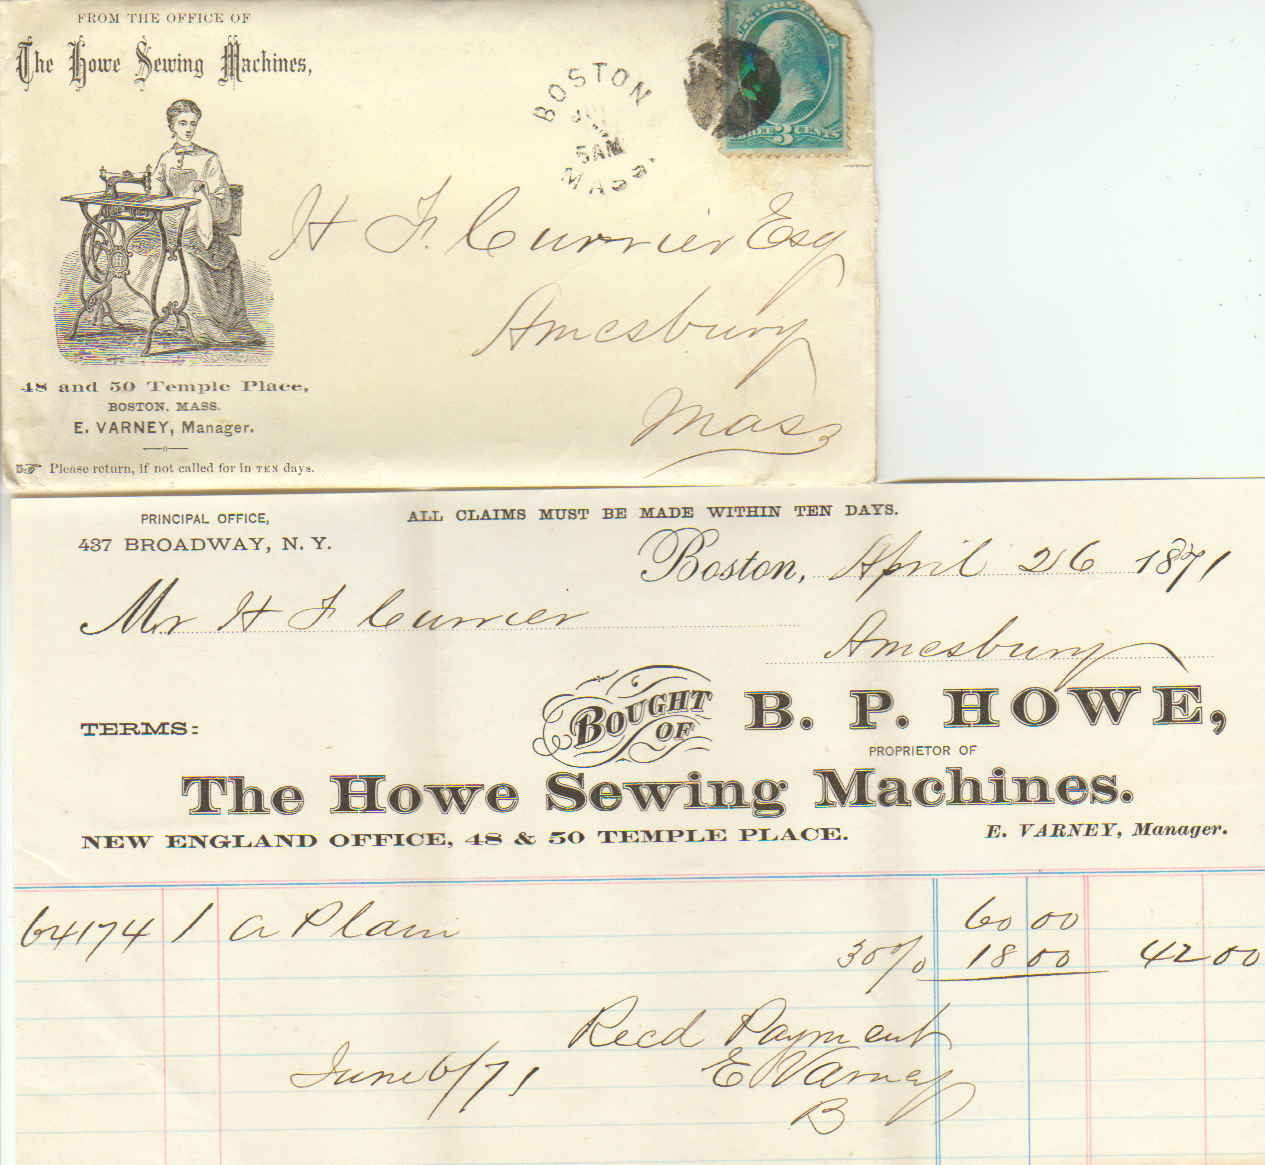 FROM THE OFFICE OF
The Howe Sewing Machines,
BOSTON
5AM
MASS.
U.S. POSTAGE
THREE 3 CENTS
H F. Currier Esq
Amesbury
Mass
48 and 50 Temple Place,
BOSTON. MASS.
E. VARNEY, Manager.
Please return, if not called for in TEN days.
PRINCIPAL OFFICE,
437 BROADWAY, N. Y.
ALL CLAIMS MUST BE MADE WITHIN TEN DAYS.
Boston, April 26 1871
Mr H F Currier
Amesbury
TERMS:
BOUGHT OF B. P. HOWE,
PROPRIETOR OF
The Howe Sewing Machines.
NEW ENGLAND OFFICE, 48 & 50 TEMPLE PLACE.
E. VARNEY, Manager.
64174 1 A Plain 60 00
30% 18 00 42 00
Recd Payment
June 6/71 E Varney
B